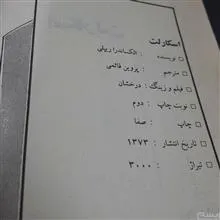 اسکارلت
نویسنده : الکساندرا ریپلی
مترجم : پروین قائمی
فیلم و زینگ : درخشان
نوبت چاپ : دوم
چاپ : صفا
تاریخ انتشار : ۱۳۷۳
تیراژ : ۳۰۰۰